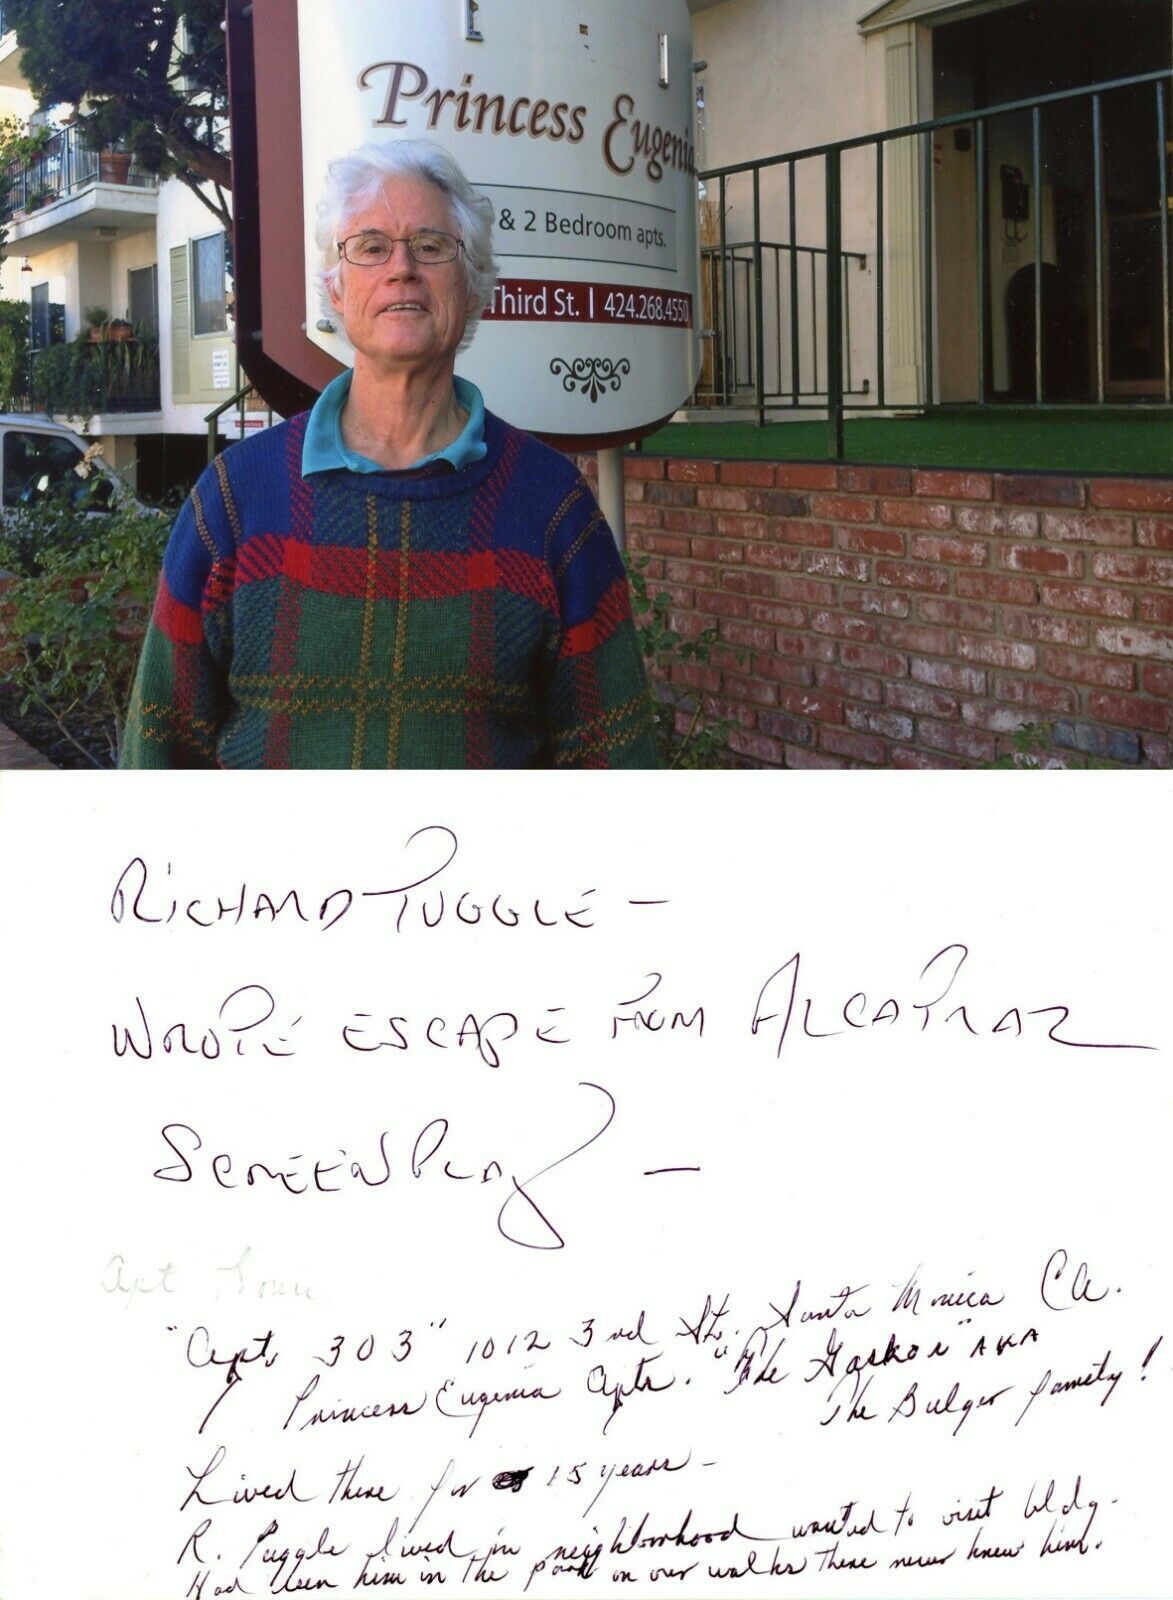 Princess Eugenia
& 2 Bedroom apts.
Third St. | 424.268.4550
RICHARD TUGGLE –
WROTE ESCAPE FROM ALCATRAZ
SCREENPLAY –
Apt
"Apt. 303" 1012 3rd St. Santa Monica CA.
Princess Eugenia Apts. "The Gaskos" AKA
The Bulger family!
Lived there for 15 years –
R. Tuggle lived in neighborhood wanted to visit bldg.
Had seen him in the park on our walks there never knew him.